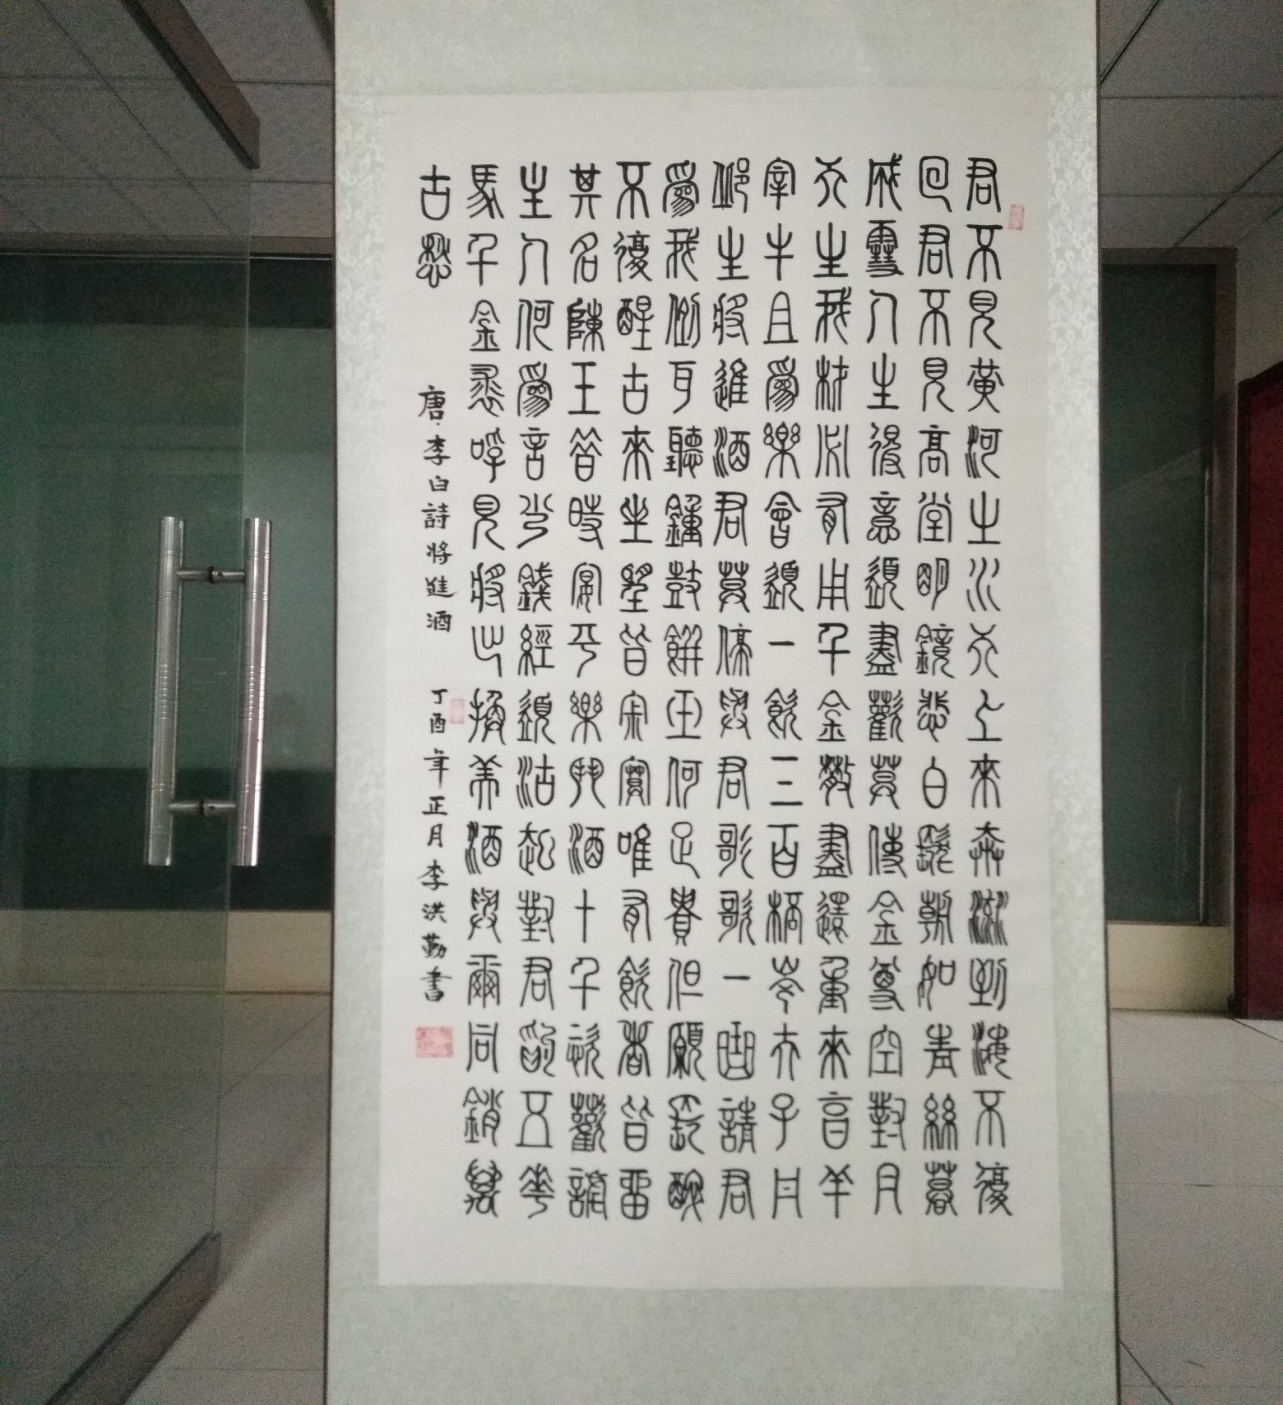 君不見黄河之水天上來奔流到海不復
回君不見高堂明鏡悲白髮朝如青絲暮
成雪人生得意須盡歡莫使金尊空對月
天生我材必有用千金散盡還重來烹羊
宰牛且爲樂會須一飲三百杯岑夫子丹
邱生將進酒君莫停與君歌歌一曲請君
爲我側耳聽鐘鼓饌玉何足貴但願長醉
不復醒古來聖賢皆寂寞唯有飲者皆留
其名陳王昔時宴平樂鬥酒十千恣歡謔
主人何爲言少錢經須沽取對君酌五花
馬千金裘呼兒將出換美酒與爾同銷萬
古愁 唐·李白詩將進酒 丁酉年正月李洪勤書